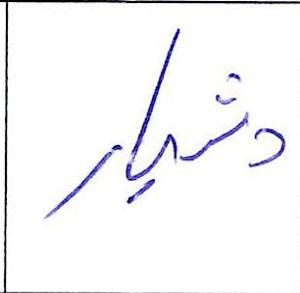 دشیار